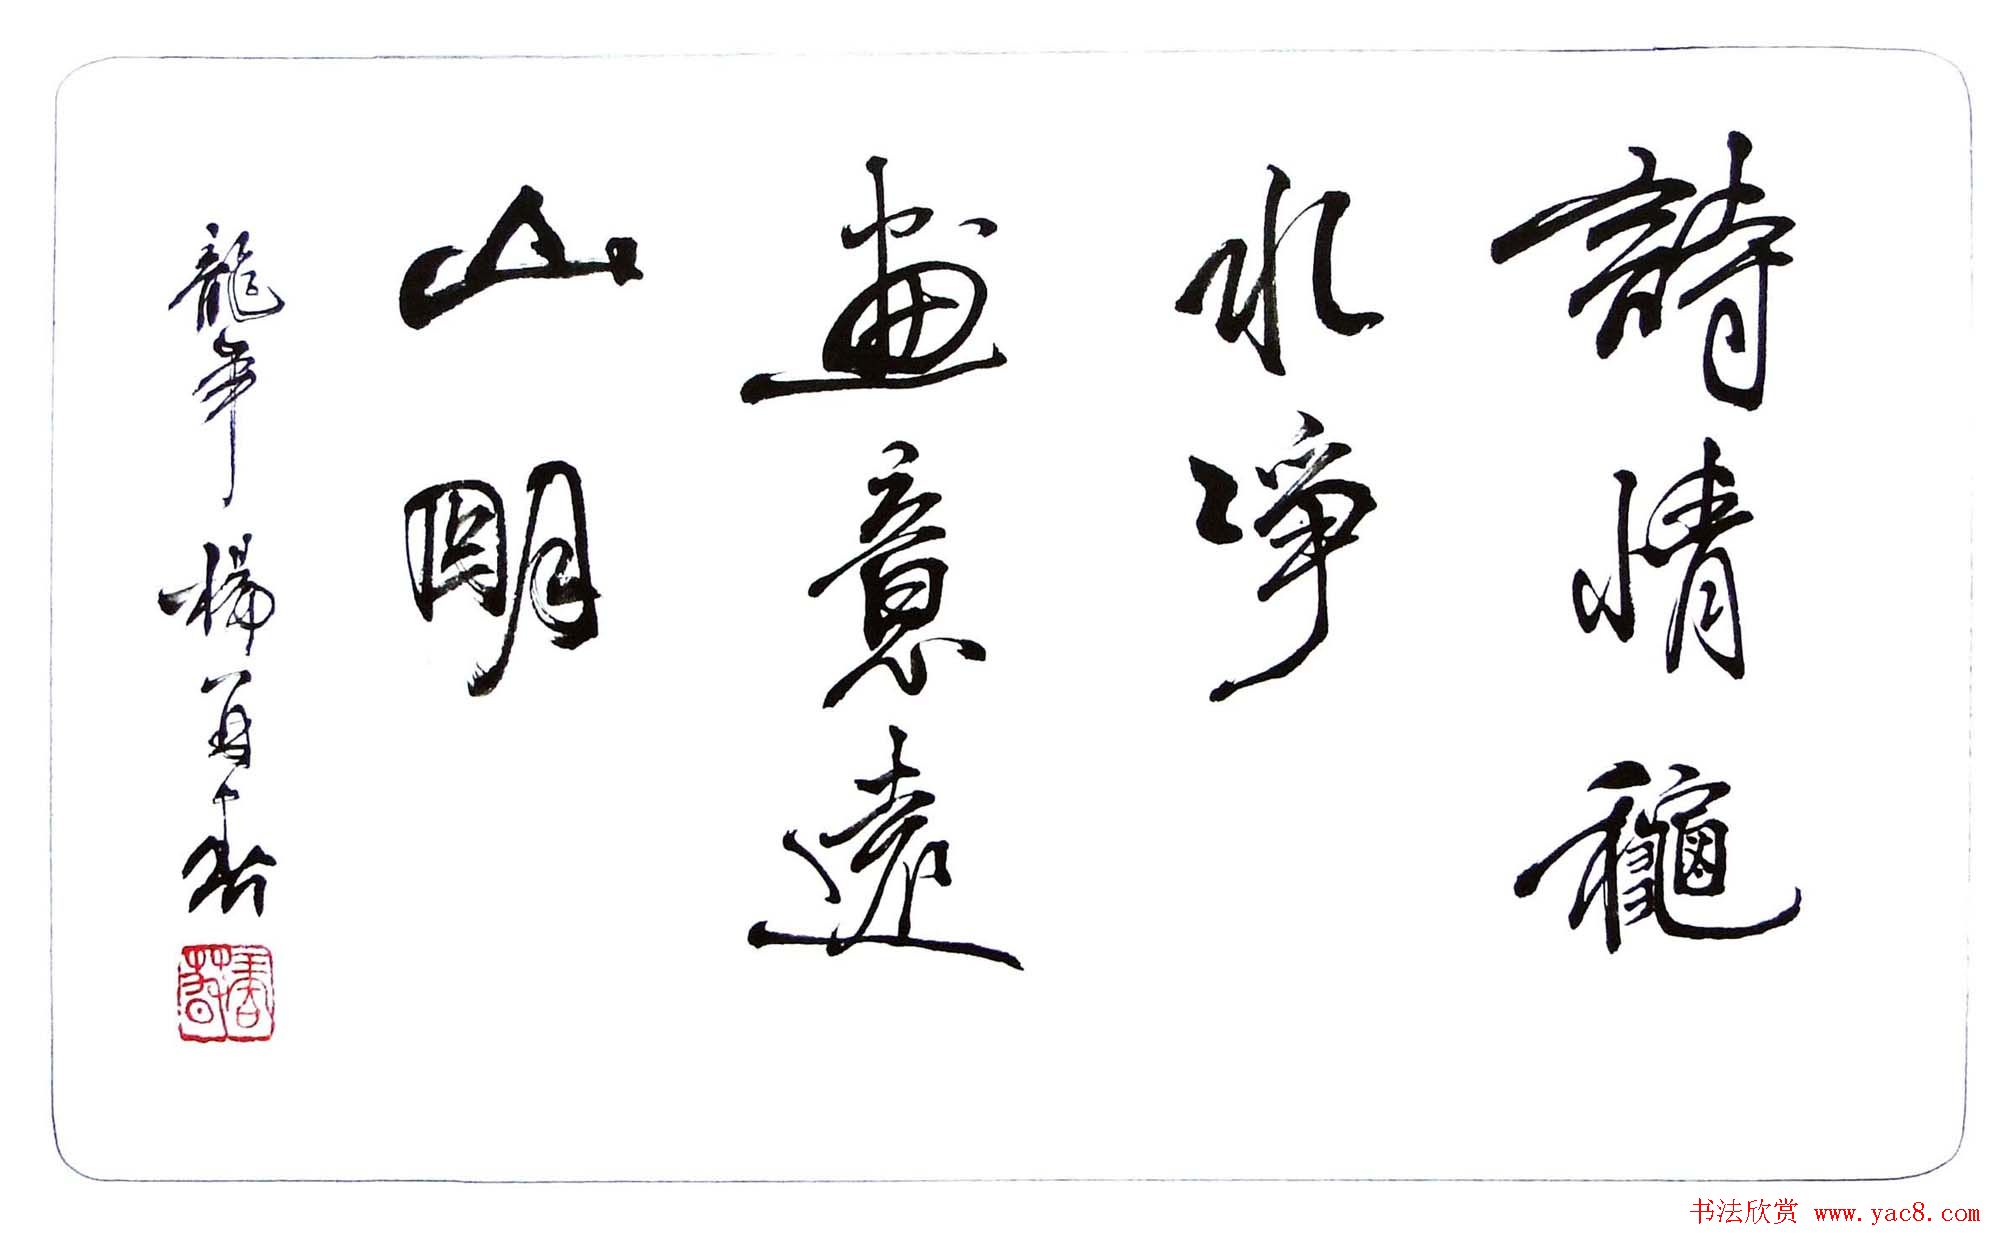 詩情龝
水凈
畫意遠
山明
龍年 楊再春
书法欣赏 www.yac8.com